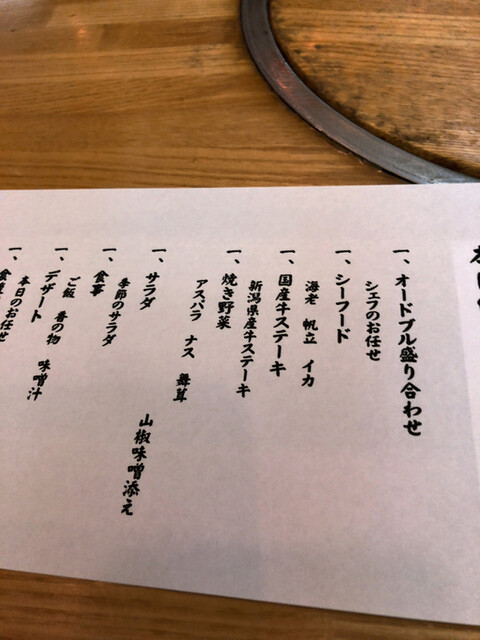 一、オードブル盛り合わせ
シェフのお任せ
一、シーフード
海老 帆立 イカ
一、国産牛ステーキ
新潟県産牛ステーキ
一、焼き野菜
アスパラ ナス 舞茸
山椒味噌添え
一、サラダ
季節のサラダ
一、食事
ご飯 香の物 味噌汁
一、デザート
本日のお任せ
一、食後